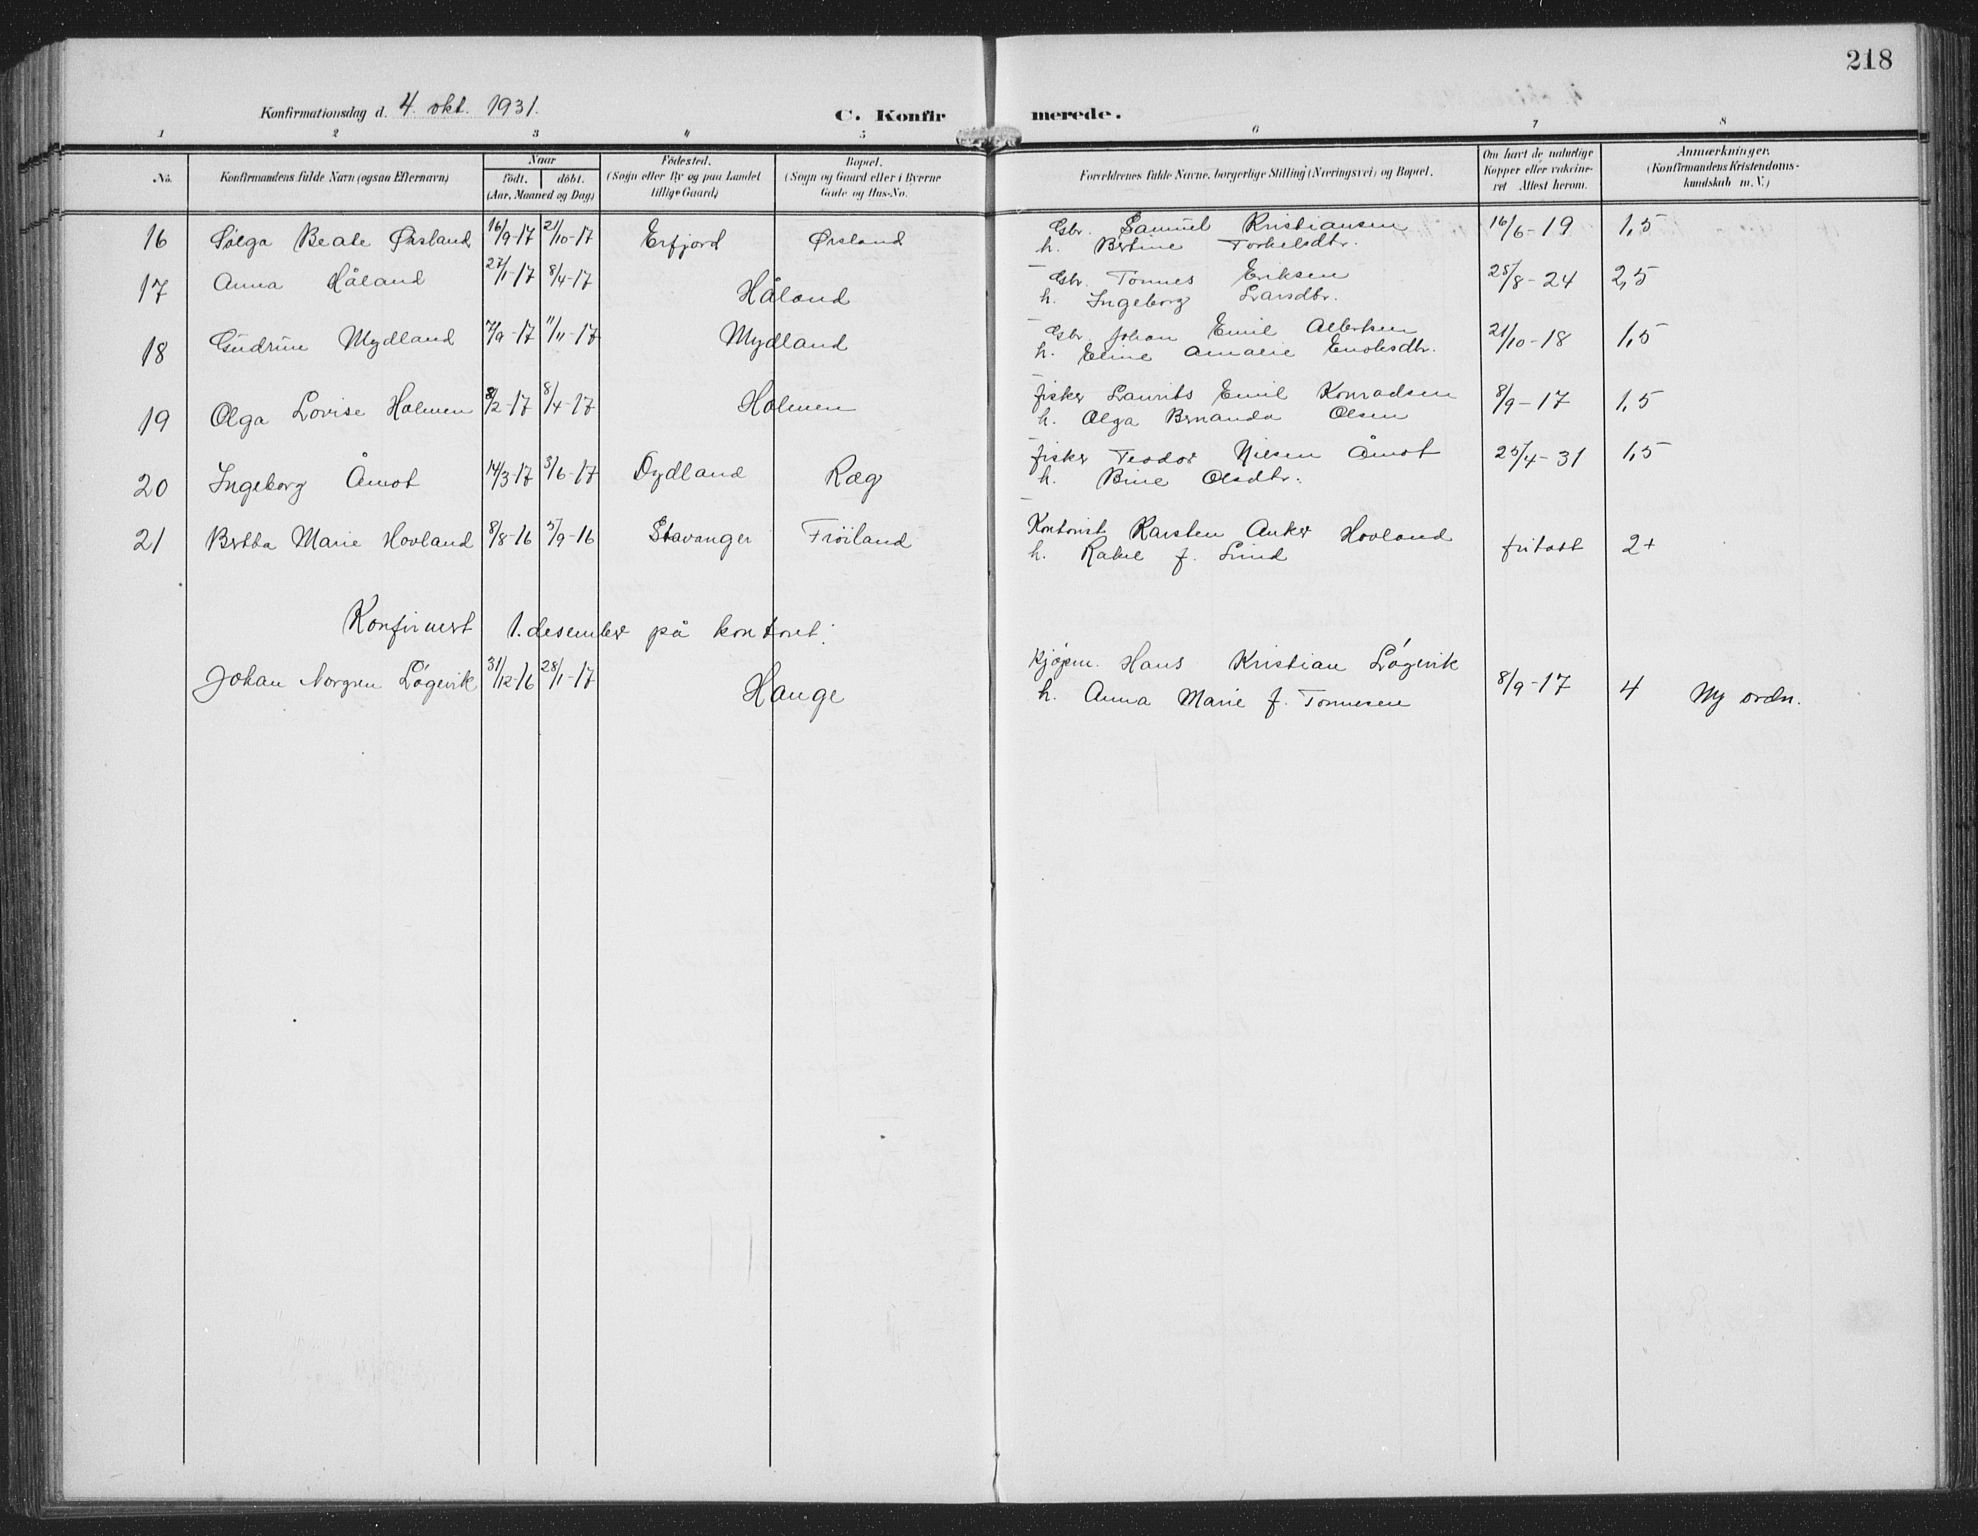 218
Konfirmationsdag d. 4. okt. 1931.
C. Konfirmerede.
1 2 3 4 5 6 7 8
No.
Konfirmandens fulde Navn (ogsaa Efternavn)
Naar
födt. döbt.
(Aar, Maaned og Dag)
Födested.
(Sogn eller By og paa Landet
tillige Gaard)
Bopæl.
(Sogn og Gaard eller i Byerne
Gade og Hus-No.
Forældrenes fulde Navne, borgerlige Stilling (Næringsvei) og Bopæl.
Om havt de naturlige
Kopper eller vakcine-
ret Attest herom.
Anmærkninger.
(Konfirmandens Kristendoms-
kundskab m. V.)
16 Sølga Beate Ørsland 16/9-17 21/10-17 Erfjord Ørsland Gbr. Samuel Kristiansen 16/6-19 1,5
h. Bertine Torkelsdtr.
17 Anna Håland 27/1-17 8/4-17 Håland Gbr. Tønnes Eriksen 28/8-24 2,5
h. Ingeborg Larsdtr.
18 Gudrun Mydland 7/9-17 11/11-17 Mydland Gbr. Johan Emil Albertsen 21/10-18 1,5
h. Eline Amalie Enoksdtr.
19 Olga Lovise Holmen 8/2-17 8/4-17 Holmen fisker Laurits Emil Konradsen 8/9-17 1,5
h. Olga Bernanda Olsen
20 Ingeborg Åmot 14/3-17 3/6-17 Dydland Ræg fisker Teodor Nilsen Åmot 25/4-31 1,5
h. Bine Olsdtr.
21 Bertha Marie Hovland 8/8-16 5/9-16 Stavanger Frøiland Kontorist Karsten Anker Hovland fritatt 2+
h. Rakel f. Lund
Konfirmert 1. desember på kontoret:
Johan Norgren Løgevik 31/12-16 28/1-17 Hauge Kjøpm. Hans Kristian Løgevik 8/9-17 4 Ny ordn.
h. Anna Marie f. Tønnesen